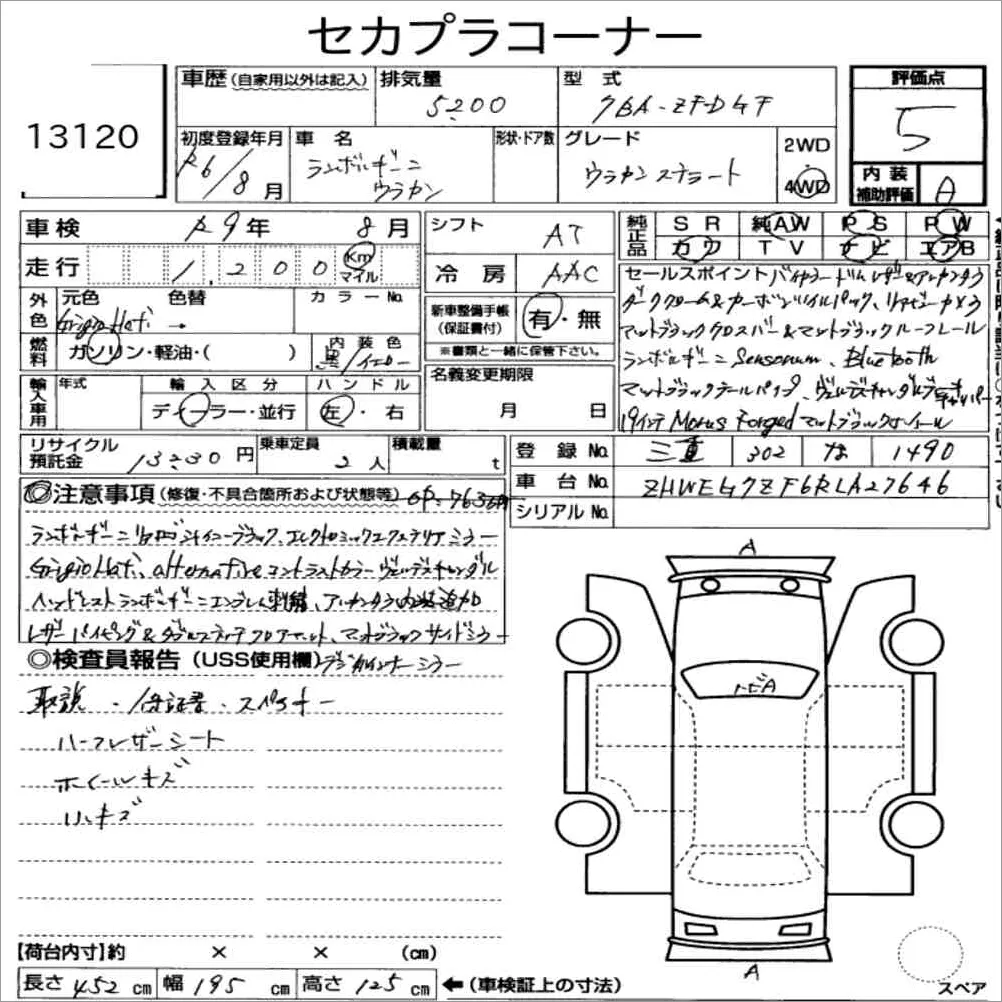 セカプラコーナー
13120
車歴(自家用以外は記入) 排気量 5200 型式 7BA-ZFD4F
初度登録年月 R6/8月 車名 ランボルギーニ ウラカン 形状・ドア数 グレード ウラカン ステラート 2WD 4WD
評価点 5
内装補助評価 A
車検 R9年 8月
走行 1,200 Km マイル
外色 元色 Grigio Hati 色替 → カラーNo.
燃料 ガソリン・軽油・( ) 内装色 黒/イエロー
輸入車用 年式 輸入区分 ディーラー・並行 ハンドル 左・右
リサイクル預託金 13230円 乗車定員 2人 積載量 t
シフト AT
冷房 AAC
新車整備手帳(保証書付) 有・無
※書類と一緒に保管下さい。
名義変更期限 月 日
純正品 SR 純AW PS PW
カワ TV ナビ エアB
セールスポイント
ダーククローム&カーボン
マットブラッククロスバー&マットブラックルーフレール
ランボルギーニ Sensonum、Bluetooth
マットブラックテールパイプ、
19インチ Morus Forged マットブラックホイール
登録No. 三重 302 な 1490
車台No. ZHWEG7ZF6RLA27646
シリアルNo.
◎注意事項(修復・不具合箇所および状態等) OP:763万円
ランボルギーニ エレクトロミックエクステリアミラー
Grigio Hati、alternative コントラストカラー ヴェルデスキャンダル
ヘッドレスト ランボルギーニエンブレム刺繍、アルカンタラ内装追加
レザーパイピング&ダブルステッチフロアマット、マットブラックサイドミラー
◎検査員報告(USS使用欄) デジタルインナーミラー
取説・保証書・スペキー
ハーフレザーシート
ホイールキズ
小キズ
A
トビA
A
【荷台内寸】約 × × (cm)
長さ 452 cm 幅 195 cm 高さ 125 cm ←(車検証上の寸法)
スペア